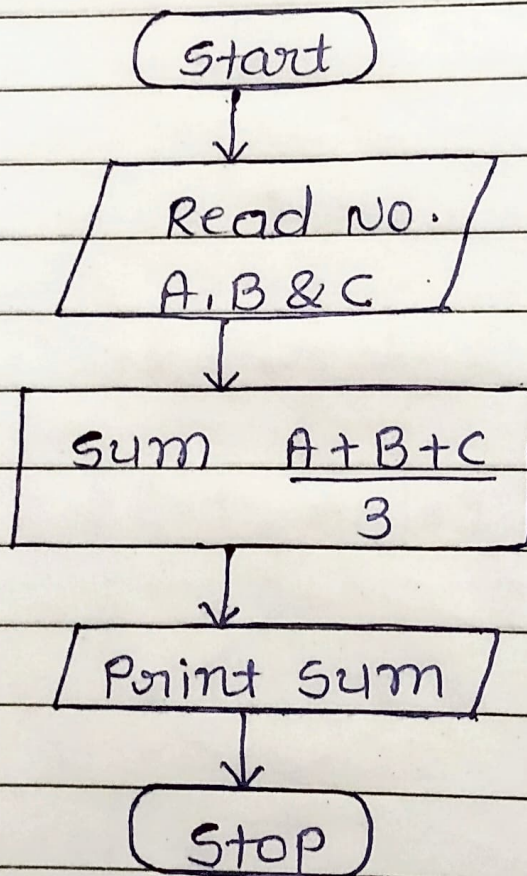 Start
Read No.
A, B & C
Sum A + B + C
3
Print Sum
Stop